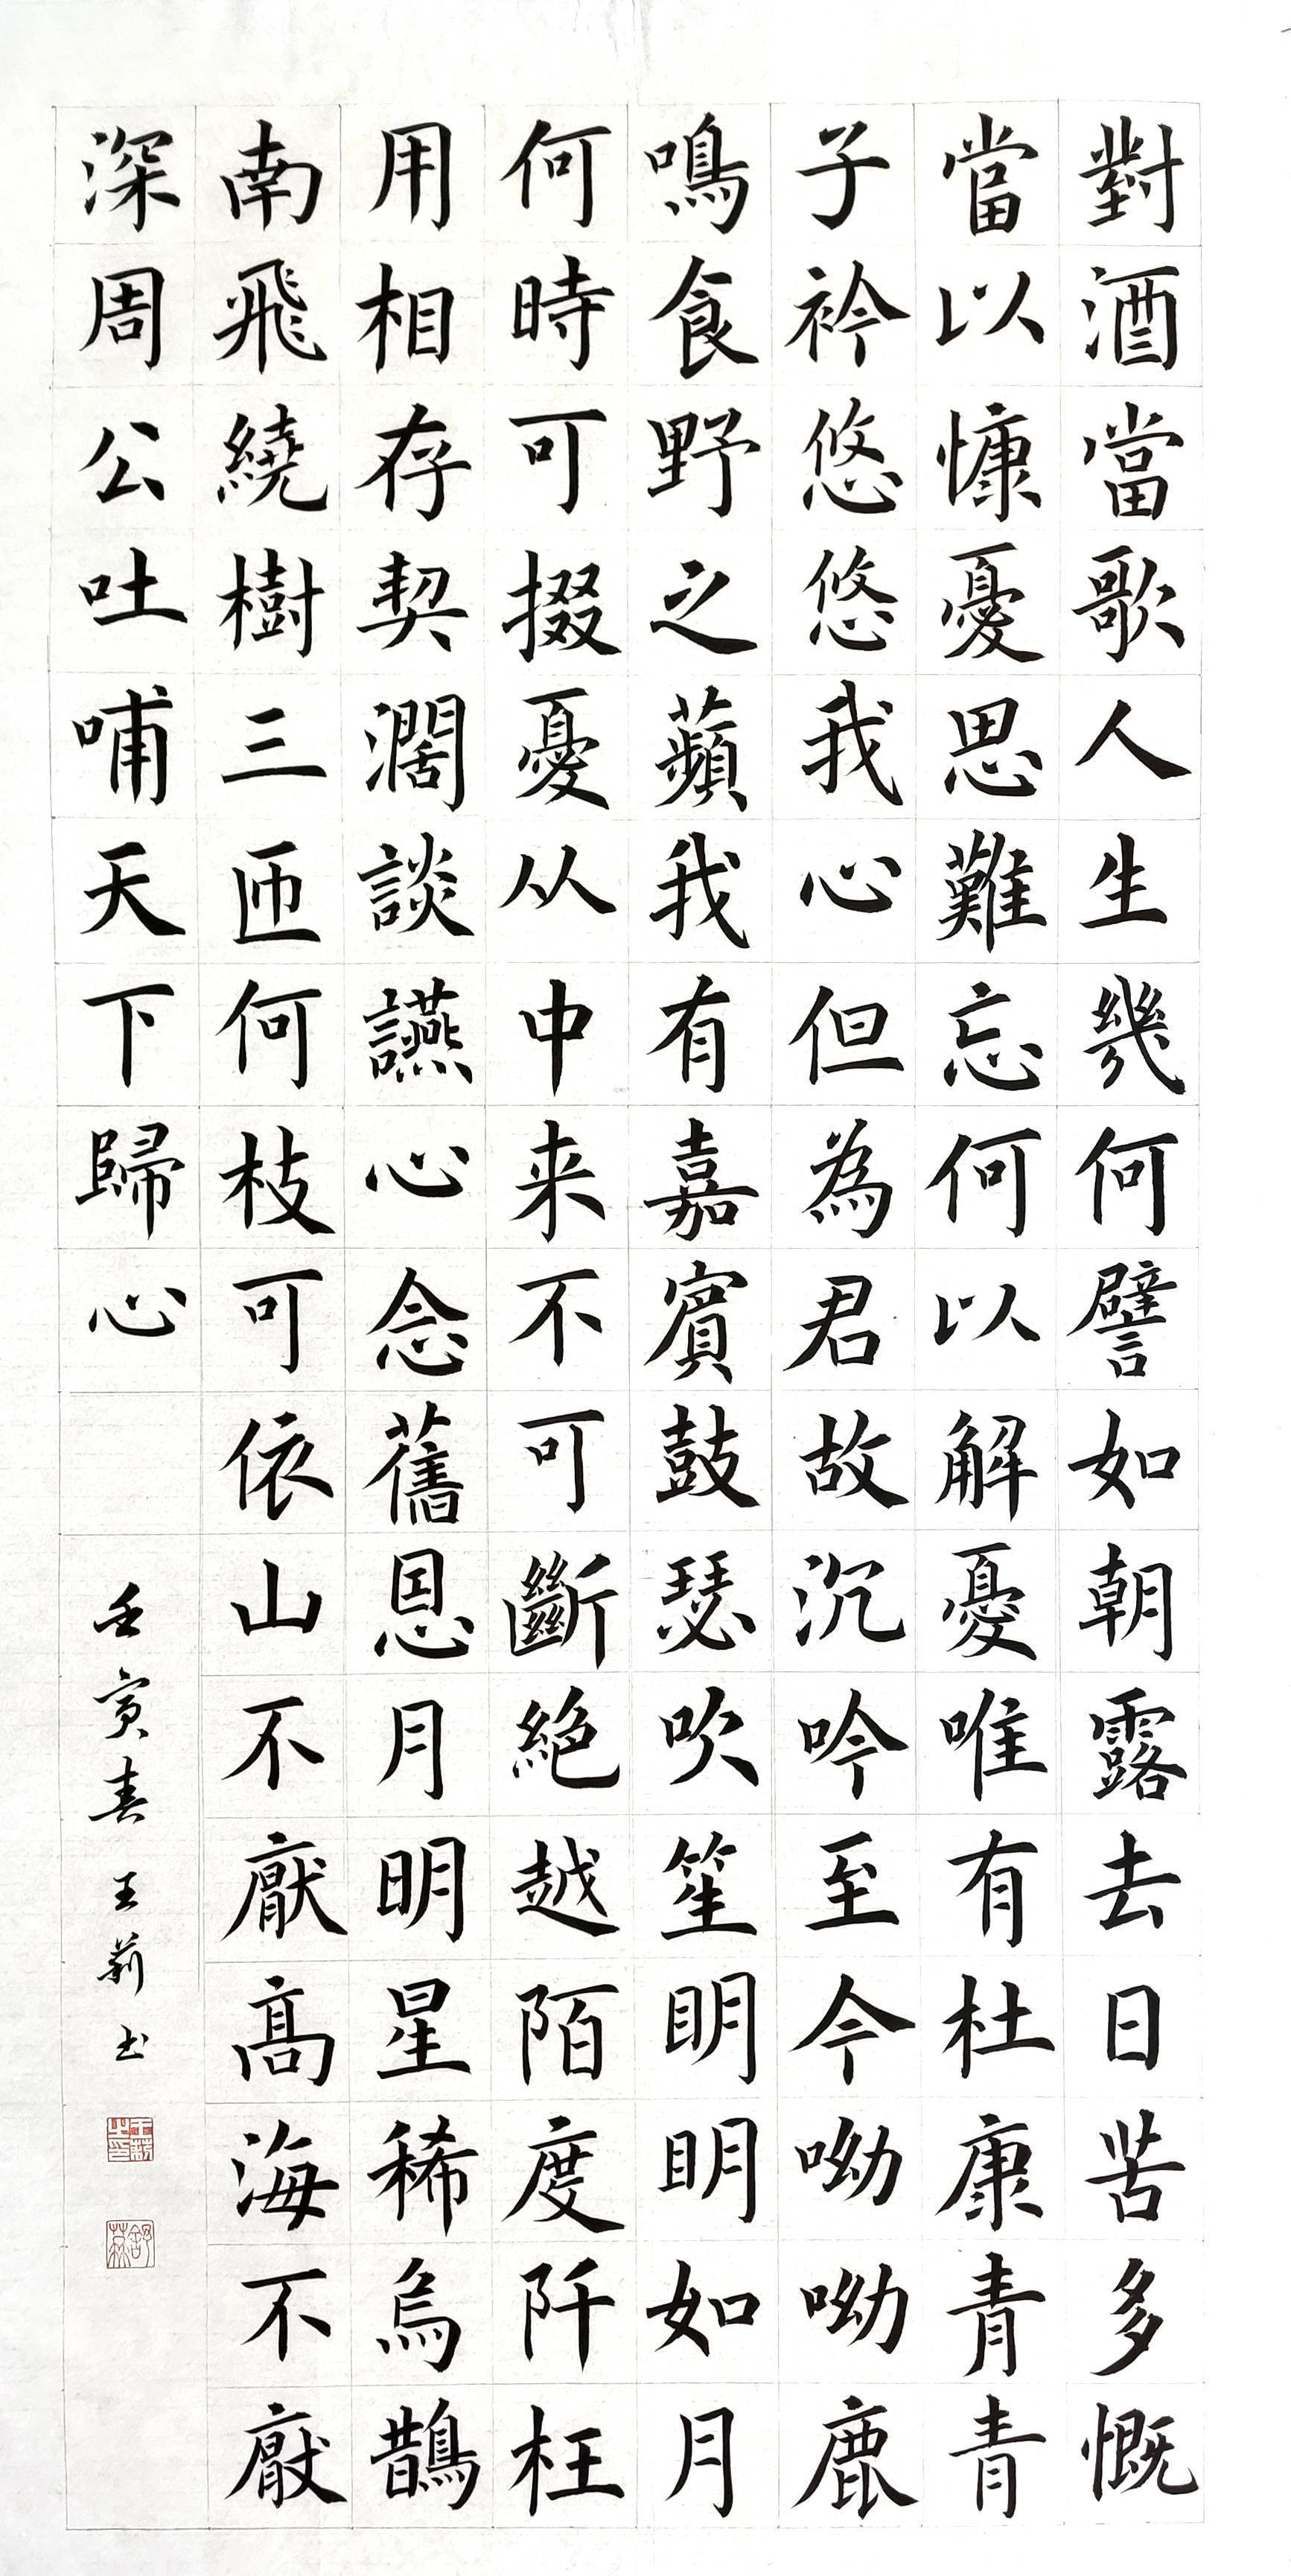 對酒當歌人生幾何譬如朝露去日苦多慨
當以慷憂思難忘何以解憂唯有杜康青青
子衿悠悠我心但為君故沉吟至今呦呦鹿
鳴食野之蘋我有嘉賓鼓瑟吹笙明明如月
何時可掇憂从中来不可斷絕越陌度阡枉
用相存契濶談讌心念舊恩月明星稀烏鵲
南飛繞樹三匝何枝可依山不厭高海不厭
深周公吐哺天下歸心
壬寅春王莉书